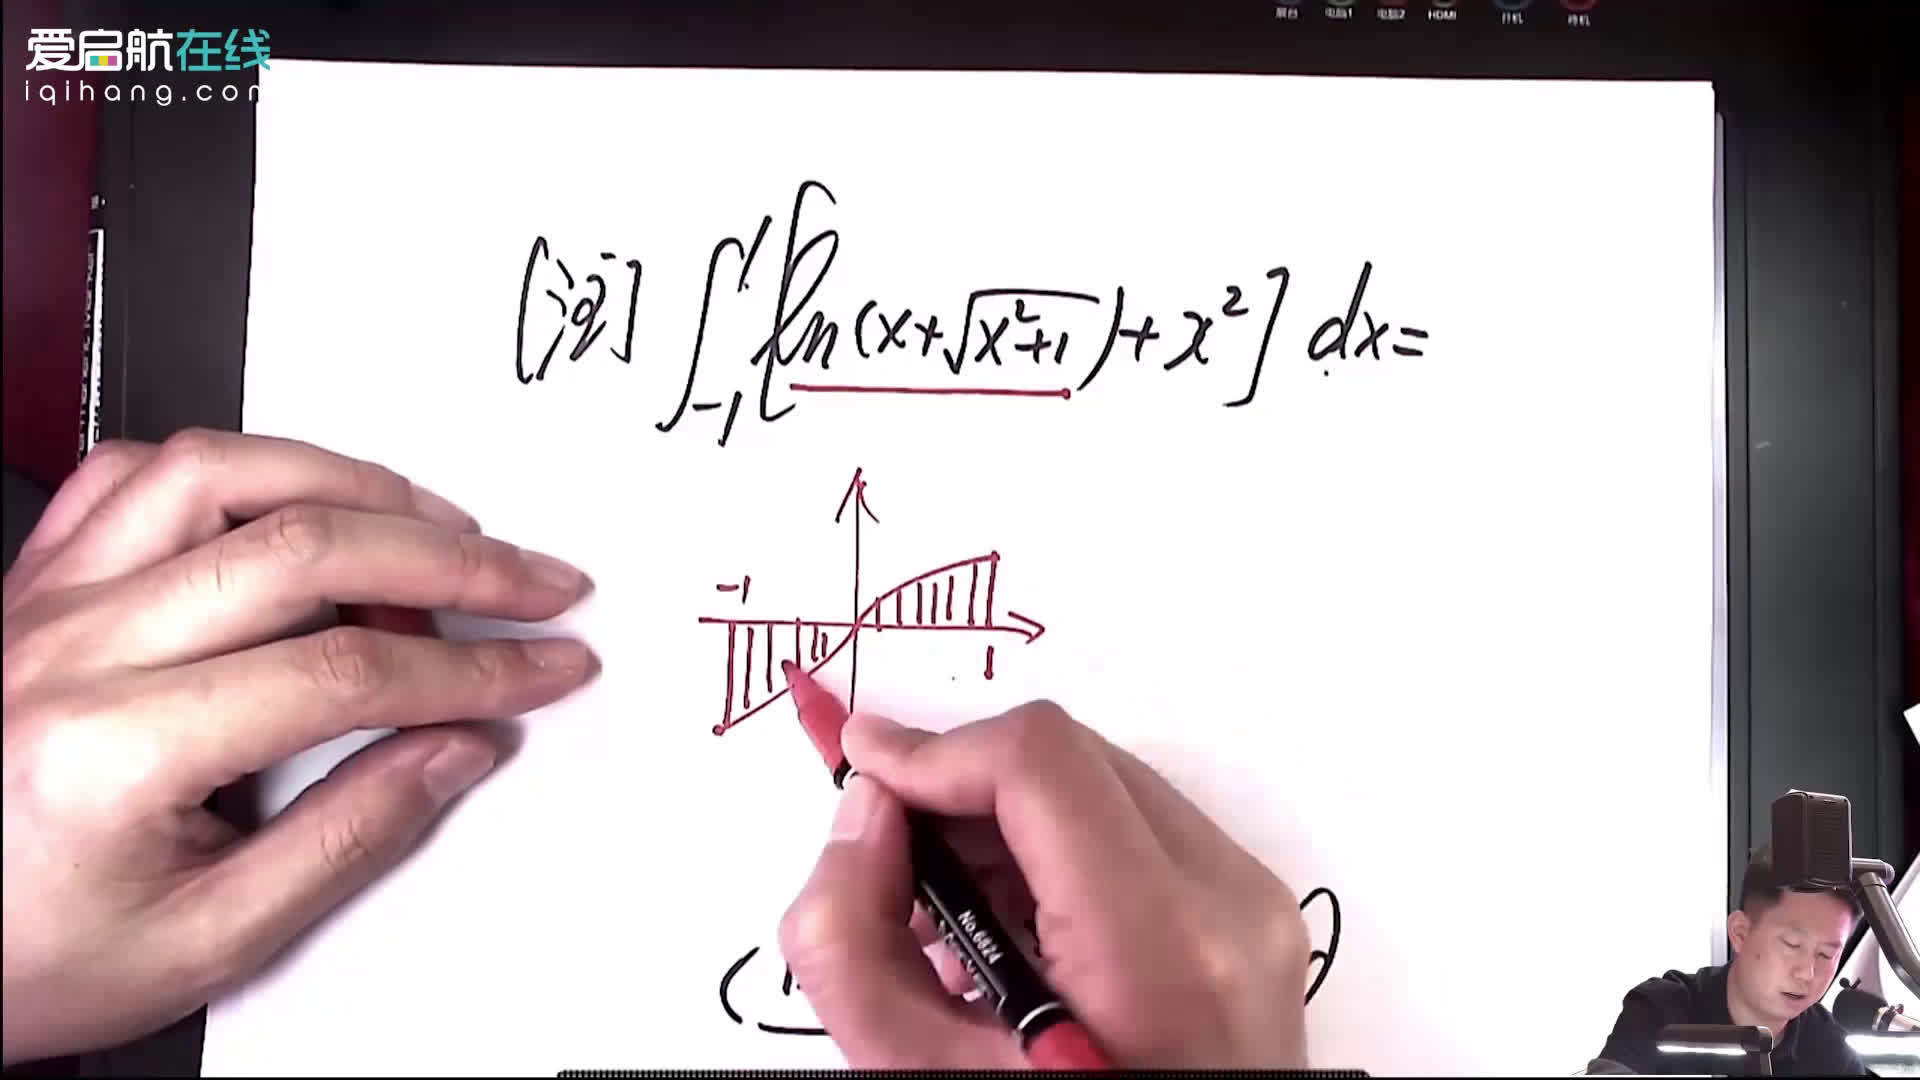 爱启航在线
iqihang.com
展台 电脑1 电脑2 HDMI 开机 待机
∫₋₁¹ [ln(x+√(x²+1))+x²] dx=
-1
1
No.6824